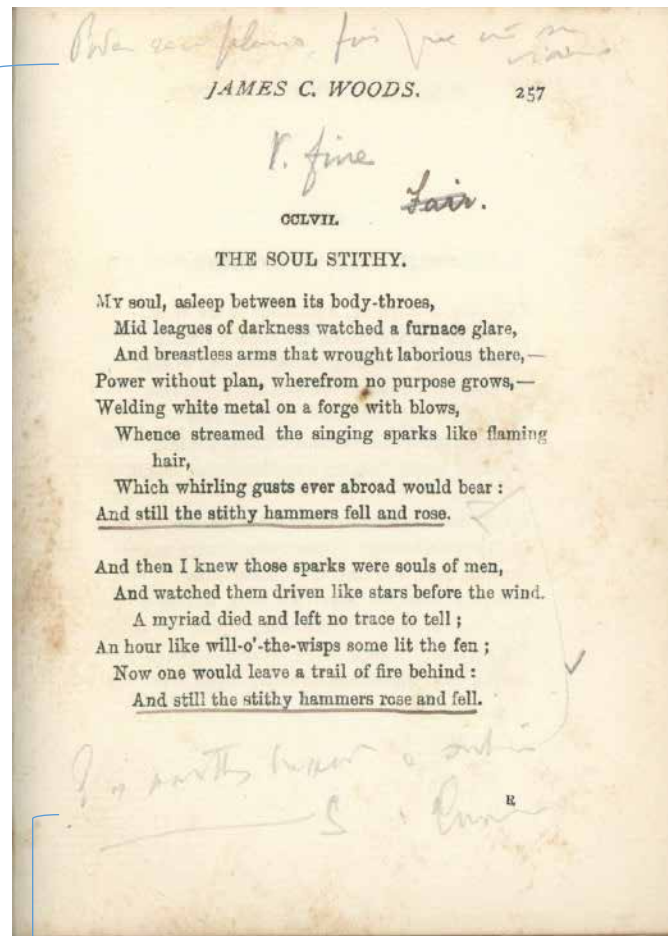 JAMES C. WOODS. 257
V. fine
Fair.
CCLVII.
THE SOUL STITHY.
MY soul, asleep between its body-throes,
Mid leagues of darkness watched a furnace glare,
And breastless arms that wrought laborious there,—
Power without plan, wherefrom no purpose grows,—
Welding white metal on a forge with blows,
Whence streamed the singing sparks like flaming
hair,
Which whirling gusts ever abroad would bear :
And still the stithy hammers fell and rose.
And then I knew those sparks were souls of men,
And watched them driven like stars before the wind.
A myriad died and left no trace to tell ;
An hour like will-o'-the-wisps some lit the fen ;
Now one would leave a trail of fire behind :
And still the stithy hammers rose and fell.
R